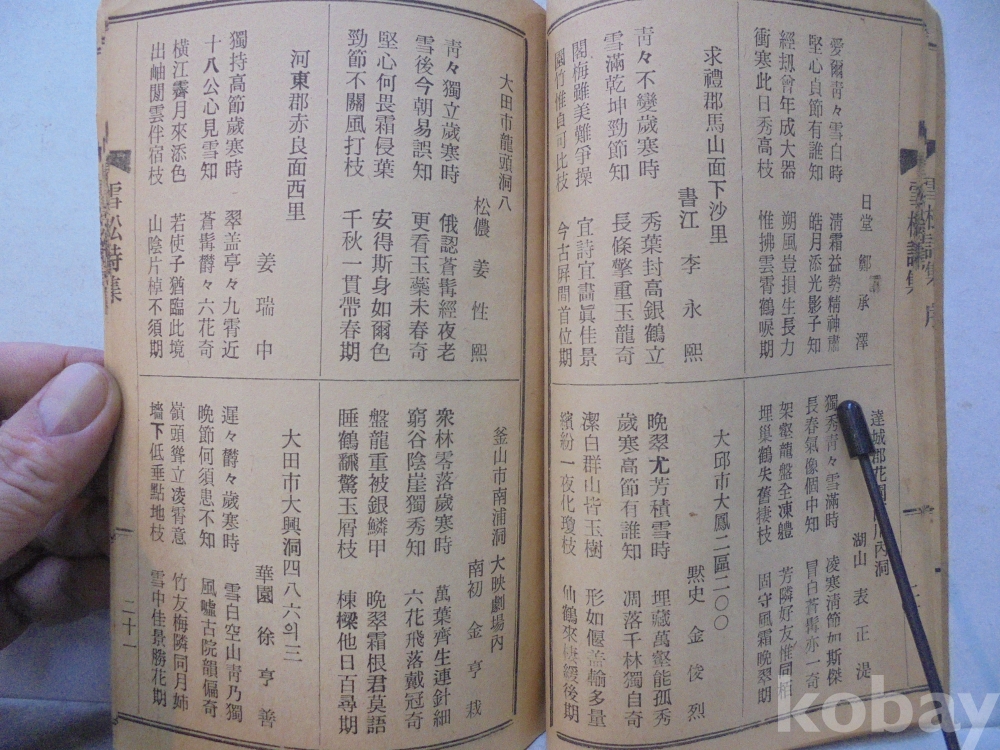 日堂 鄭承澤
愛爾靑々雪白時 淸霜益勢精神肅
堅心貞節有誰知 皓月添光影子知
經刧曾年成大器 朔風豈損生長力
衝寒此日秀高枝 惟拂雲霄鶴唳期
湖山 表正湜
獨秀靑々雪滿時 凌寒淸節如斯傑
長春氣像個中知 冒白蒼髯亦一奇
架壑龍盤全凍軆 芳隣好友惟同栢
埋巢鶴失舊棲枝 固守風霜晩翠期
求禮郡馬山面下沙里
書江 李永熙
靑々不變歲寒時 秀葉封高銀鶴立
雪滿乾坤勁節知 長條擎重玉龍奇
閣梅雖美難爭操 宜詩宜畵眞佳景
園竹惟貞可比枝 今古屛間首位期
大邱市大鳳二區二〇〇
默史 金俊烈
晩翠尤芳積雪時 埋藏萬壑能孤秀
歲寒高節有誰知 凋落千林獨自奇
潔白群山皆玉樹 形如偃盖輸多量
繽紛一夜化瓊枝 仙鶴來棲緩後期
大田市龍頭洞八
松儂 姜性熙
靑々獨立歲寒時 俄認蒼髯經夜老
雪後今朝易誤知 更看玉蘂未春奇
堅心何畏霜侵葉 安得斯身如爾色
勁節不關風打枝 千秋一貫帶春期
釜山市南浦洞 大映劇場內
南初 金亨栽
衆林零落歲寒時 萬葉齊生連針細
窮谷陰崖獨秀知 六花飛落戴冠奇
盤龍重被銀鱗甲 晩翠霜根君莫語
睡鶴飜驚玉屑枝 棟樑他日百尋期
河東郡赤良面西里
姜瑞中
獨持高節歲寒時 翠盖亭々九霄近
十八公心見雪知 蒼髯欝々六花奇
橫江霽月來添色 若使子猶臨此境
出岫閒雲伴宿枝 山陰片棹不須期
大田市大興洞四八六의三
華園 徐亨善
遲々欝々歲寒時 雪白空山靑乃獨
晩節何須患不知 風噓古院韻偏奇
嶺頭聳立凌霄意 竹友梅隣同月姉
墻下低垂點地枝 雪中佳景勝花期
雪松詩集
二十一
kobay